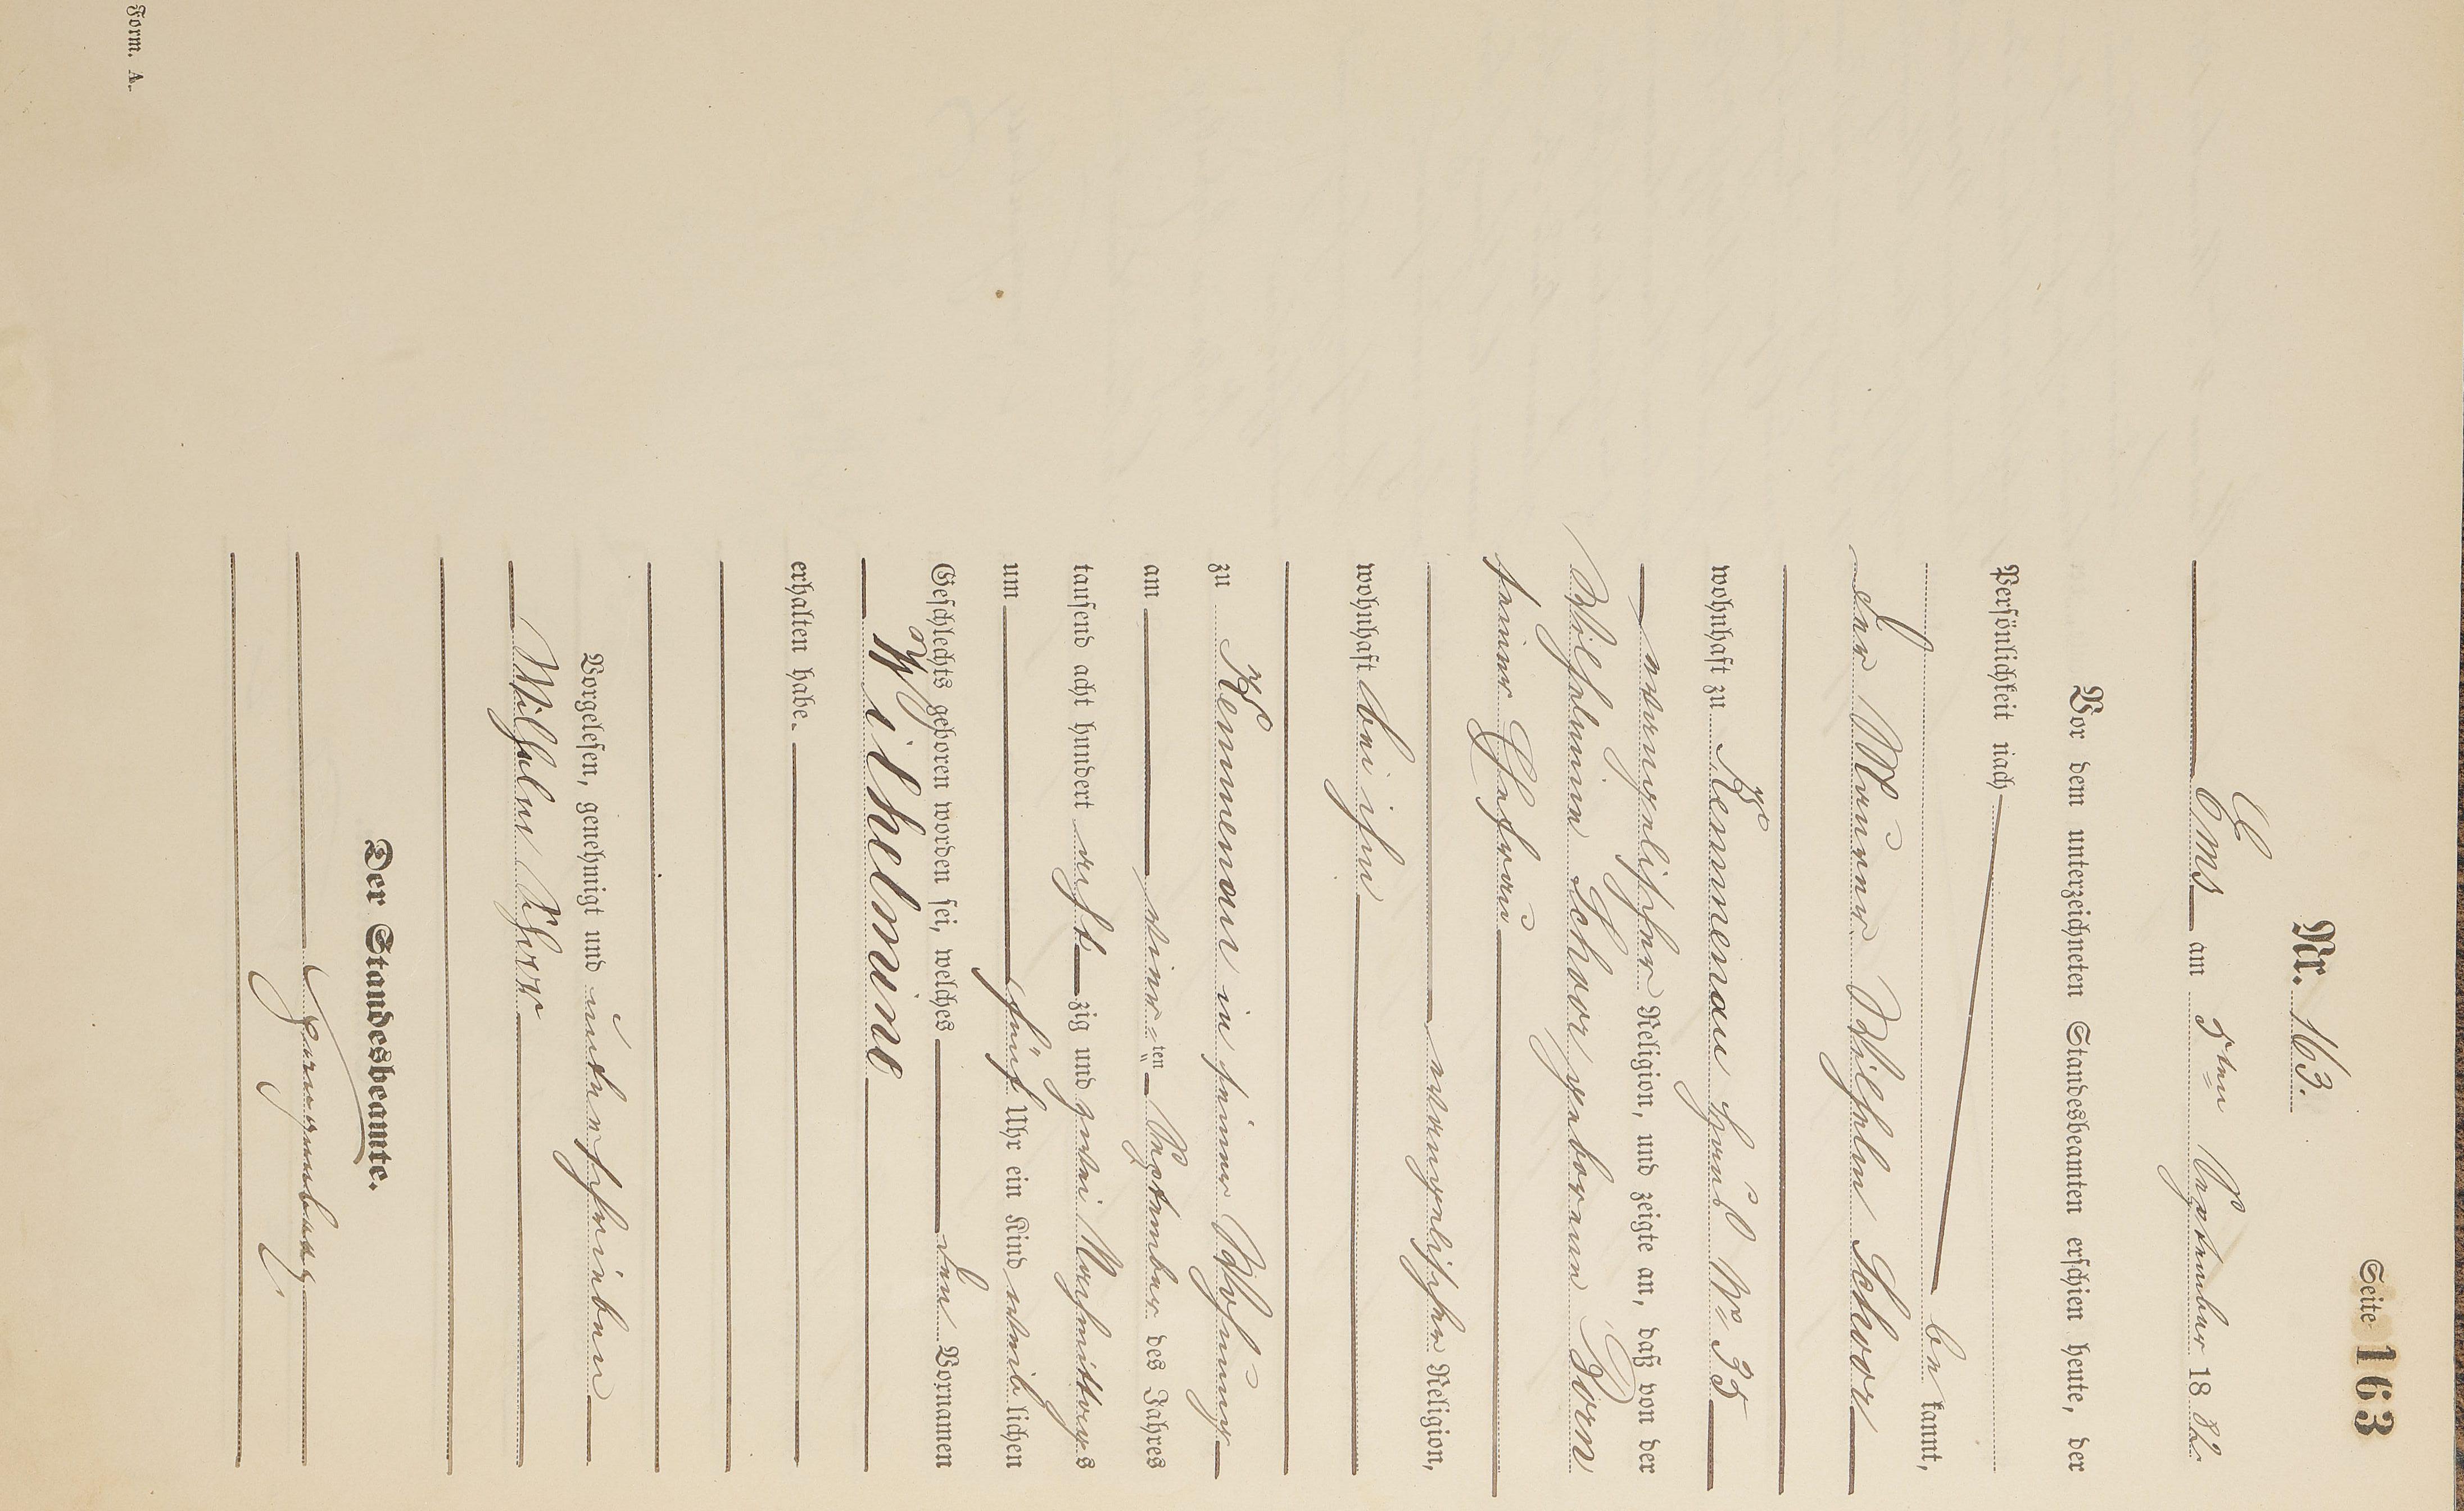 Seite 163
Nr. 163.
Ems am 5ten September 1882.
Vor dem unterzeichneten Standesbeamten erschien heute, der
Persönlichkeit nach
be kannt,
der Maurer Wilhelm Schoor
wohnhaft zu Kemmenau Haus No 35
evangelischer Religion, und zeigte an, daß von der
Wilhelmine Schoor geborenen Born
seiner Ehefrau
evangelischer Religion,
wohnhaft bei ihm
zu Kemmenau in seiner Wohnung
am vier ten September des Jahres
tausend acht hundert acht zig und zwei Nachmittags
um fünf Uhr ein Kind weib lichen
Geschlechts geboren worden sei, welches den Vornamen
Wilhelmine
erhalten habe.
Vorgelesen, genehmigt und unterschrieben
Wilhelm Schorr
Der Standesbeamte.
Form. A.